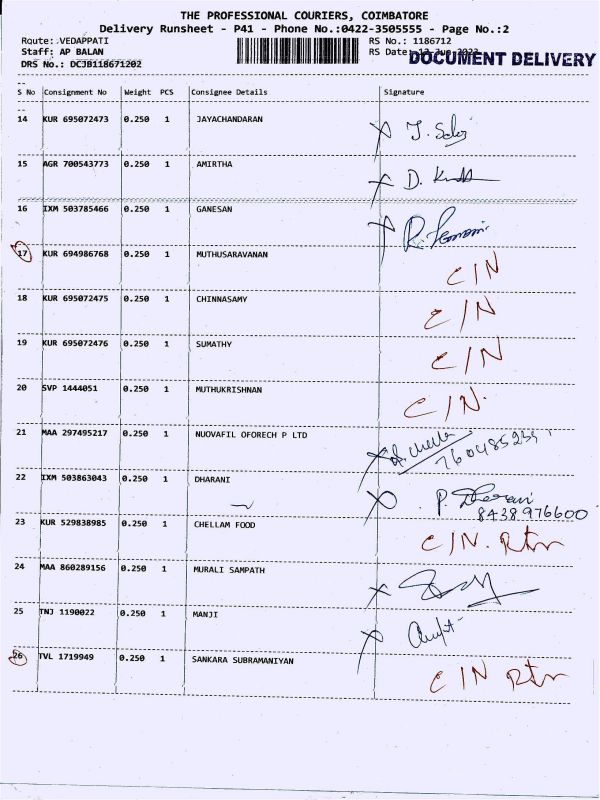 THE PROFESSIONAL COURIERS, COIMBATORE
Delivery Runsheet - P41 - Phone No.:0422-3505555 - Page No.:2
Route: VEDAPPATI
RS No.: 1186712
Staff: AP BALAN
RS Date:
DOCUMENT DELIVERY
DRS No.: DCJB118671202
S No Consignment No Weight PCS Consignee Details Signature
14 KUR 695072473 0.250 1 JAYACHANDARAN
15 AGR 700543773 0.250 1 AMIRTHA D.
16 IXM 503785466 0.250 1 GANESAN R.
17 KUR 694986768 0.250 1 MUTHUSARAVANAN C/N
18 KUR 695072475 0.250 1 CHINNASAMY C/N
19 KUR 695072476 0.250 1 SUMATHY C/N
20 SVP 1444051 0.250 1 MUTHUKRISHNAN C/N.
21 MAA 297495217 0.250 1 NUOVAFIL OFORECH P LTD
22 IXM 503863043 0.250 1 DHARANI P. Dharani
8438976600
23 KUR 529838985 0.250 1 CHELLAM FOOD C/N. Rtn
24 MAA 860289156 0.250 1 MURALI SAMPATH
25 TNJ 1190022 0.250 1 MANJI
26 TVL 1719949 0.250 1 SANKARA SUBRAMANIYAN C/N Rtn